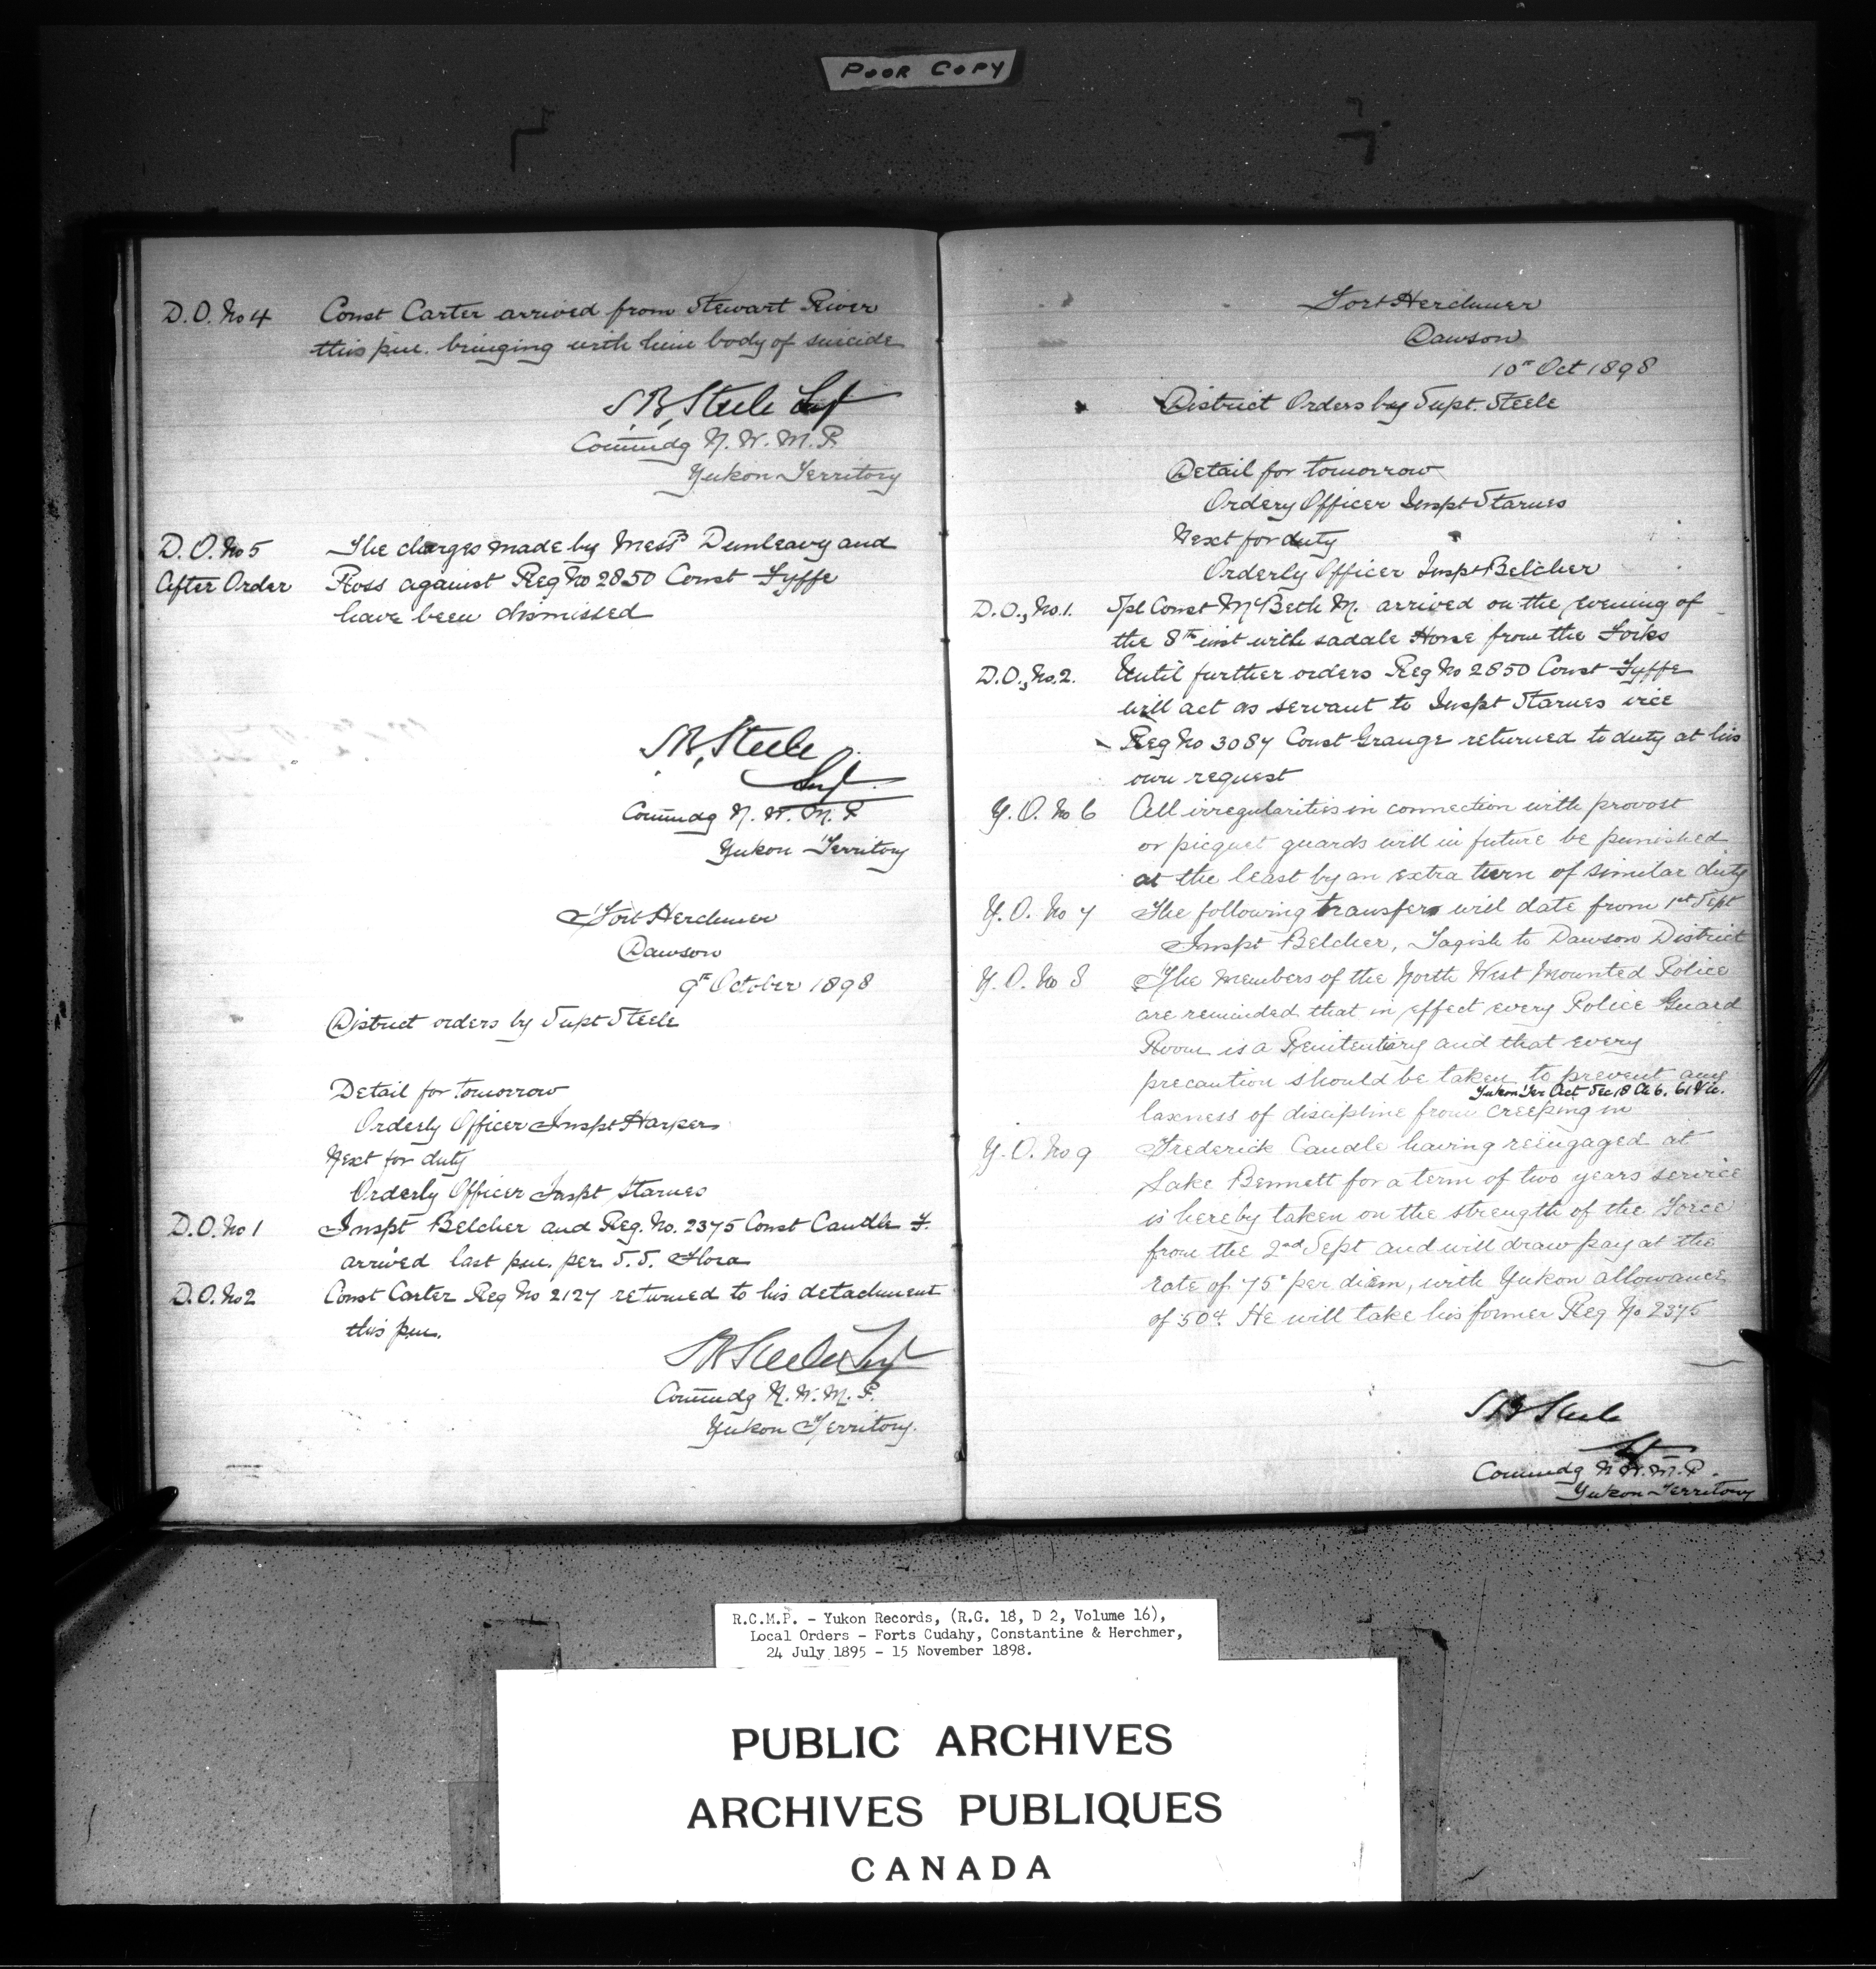 POOR COPY
D.O. No 4 Const Carter arrived from Stewart River
this p.m. bringing with him body of suicide
S.B. Steele Supt
Commdg N.W.M.P.
Yukon Territory
D.O. No 5 The charges made by Messrs Dunleavy and
After Order Ross against Reg No 2850 Const Fyffe
have been dismissed
S.B. Steele
Supt.
Commdg N.W.M.P
Yukon Territory
Fort Herchmer
Dawson
9th October 1898
District orders by Supt Steele
Detail for tomorrow
Orderly Officer Inspt Harper
Next for duty
Orderly Officer Inspt Starnes
D.O. No 1 Inspt Belcher and Reg. No. 2375 Const Caudle F.
arrived last p.m. per S.S. Flora
D.O. No 2 Const Carter Reg No 2127 returned to his detachment
this p.m.
S B Steele Supt
Commdg N.W.M.P.
Yukon Territory.
Fort Herchmer
Dawson
10th Oct 1898
District Orders by Supt. Steele
Detail for tomorrow
Ordery Officer Inspt Starnes
Next for duty
Orderly Officer Inspt Belcher
D.O., No. 1. Spl Const McBeth M. arrived on the evening of
the 8th inst with saddle Horse from the Forks
D.O., No. 2. Until further orders Reg No 2850 Const Fyffe
will act as servant to Inspt Starnes vice
Reg No 3087 Const Grange returned to duty at his
own request
Y.O. No 6 All irregularities in connection with provost
or picquet guards will in future be punished
at the least by an extra turn of similar duty
Y.O. No 7 The following transfers will date from 1st Sept
Inspt Belcher, Tagish to Dawson District
Y.O. No 8 The members of the North West Mounted Police
are reminded that in effect every Police Guard
Room is a Penitentiary and that every
precaution should be taken to prevent any
Yukon Ter Act Sec 18 Ch 6. 61 Vic.
laxness of discipline from creeping in
Y.O. No 9 Frederick Caudle having reëngaged at
Lake Bennett for a term of two years service
is hereby taken on the strength of the Force
from the 2nd Sept and will draw pay at the
rate of 75c per diem, with Yukon allowance
of 50c. He will take his former Reg No 2375
S B Steele
Supt
Commdg N.W.M.P.
Yukon Territory
R.C.M.P. - Yukon Records, (R.G. 18, D 2, Volume 16),
Local Orders - Forts Cudahy, Constantine & Herchmer,
24 July 1895 - 15 November 1898.
PUBLIC ARCHIVES
ARCHIVES PUBLIQUES
CANADA